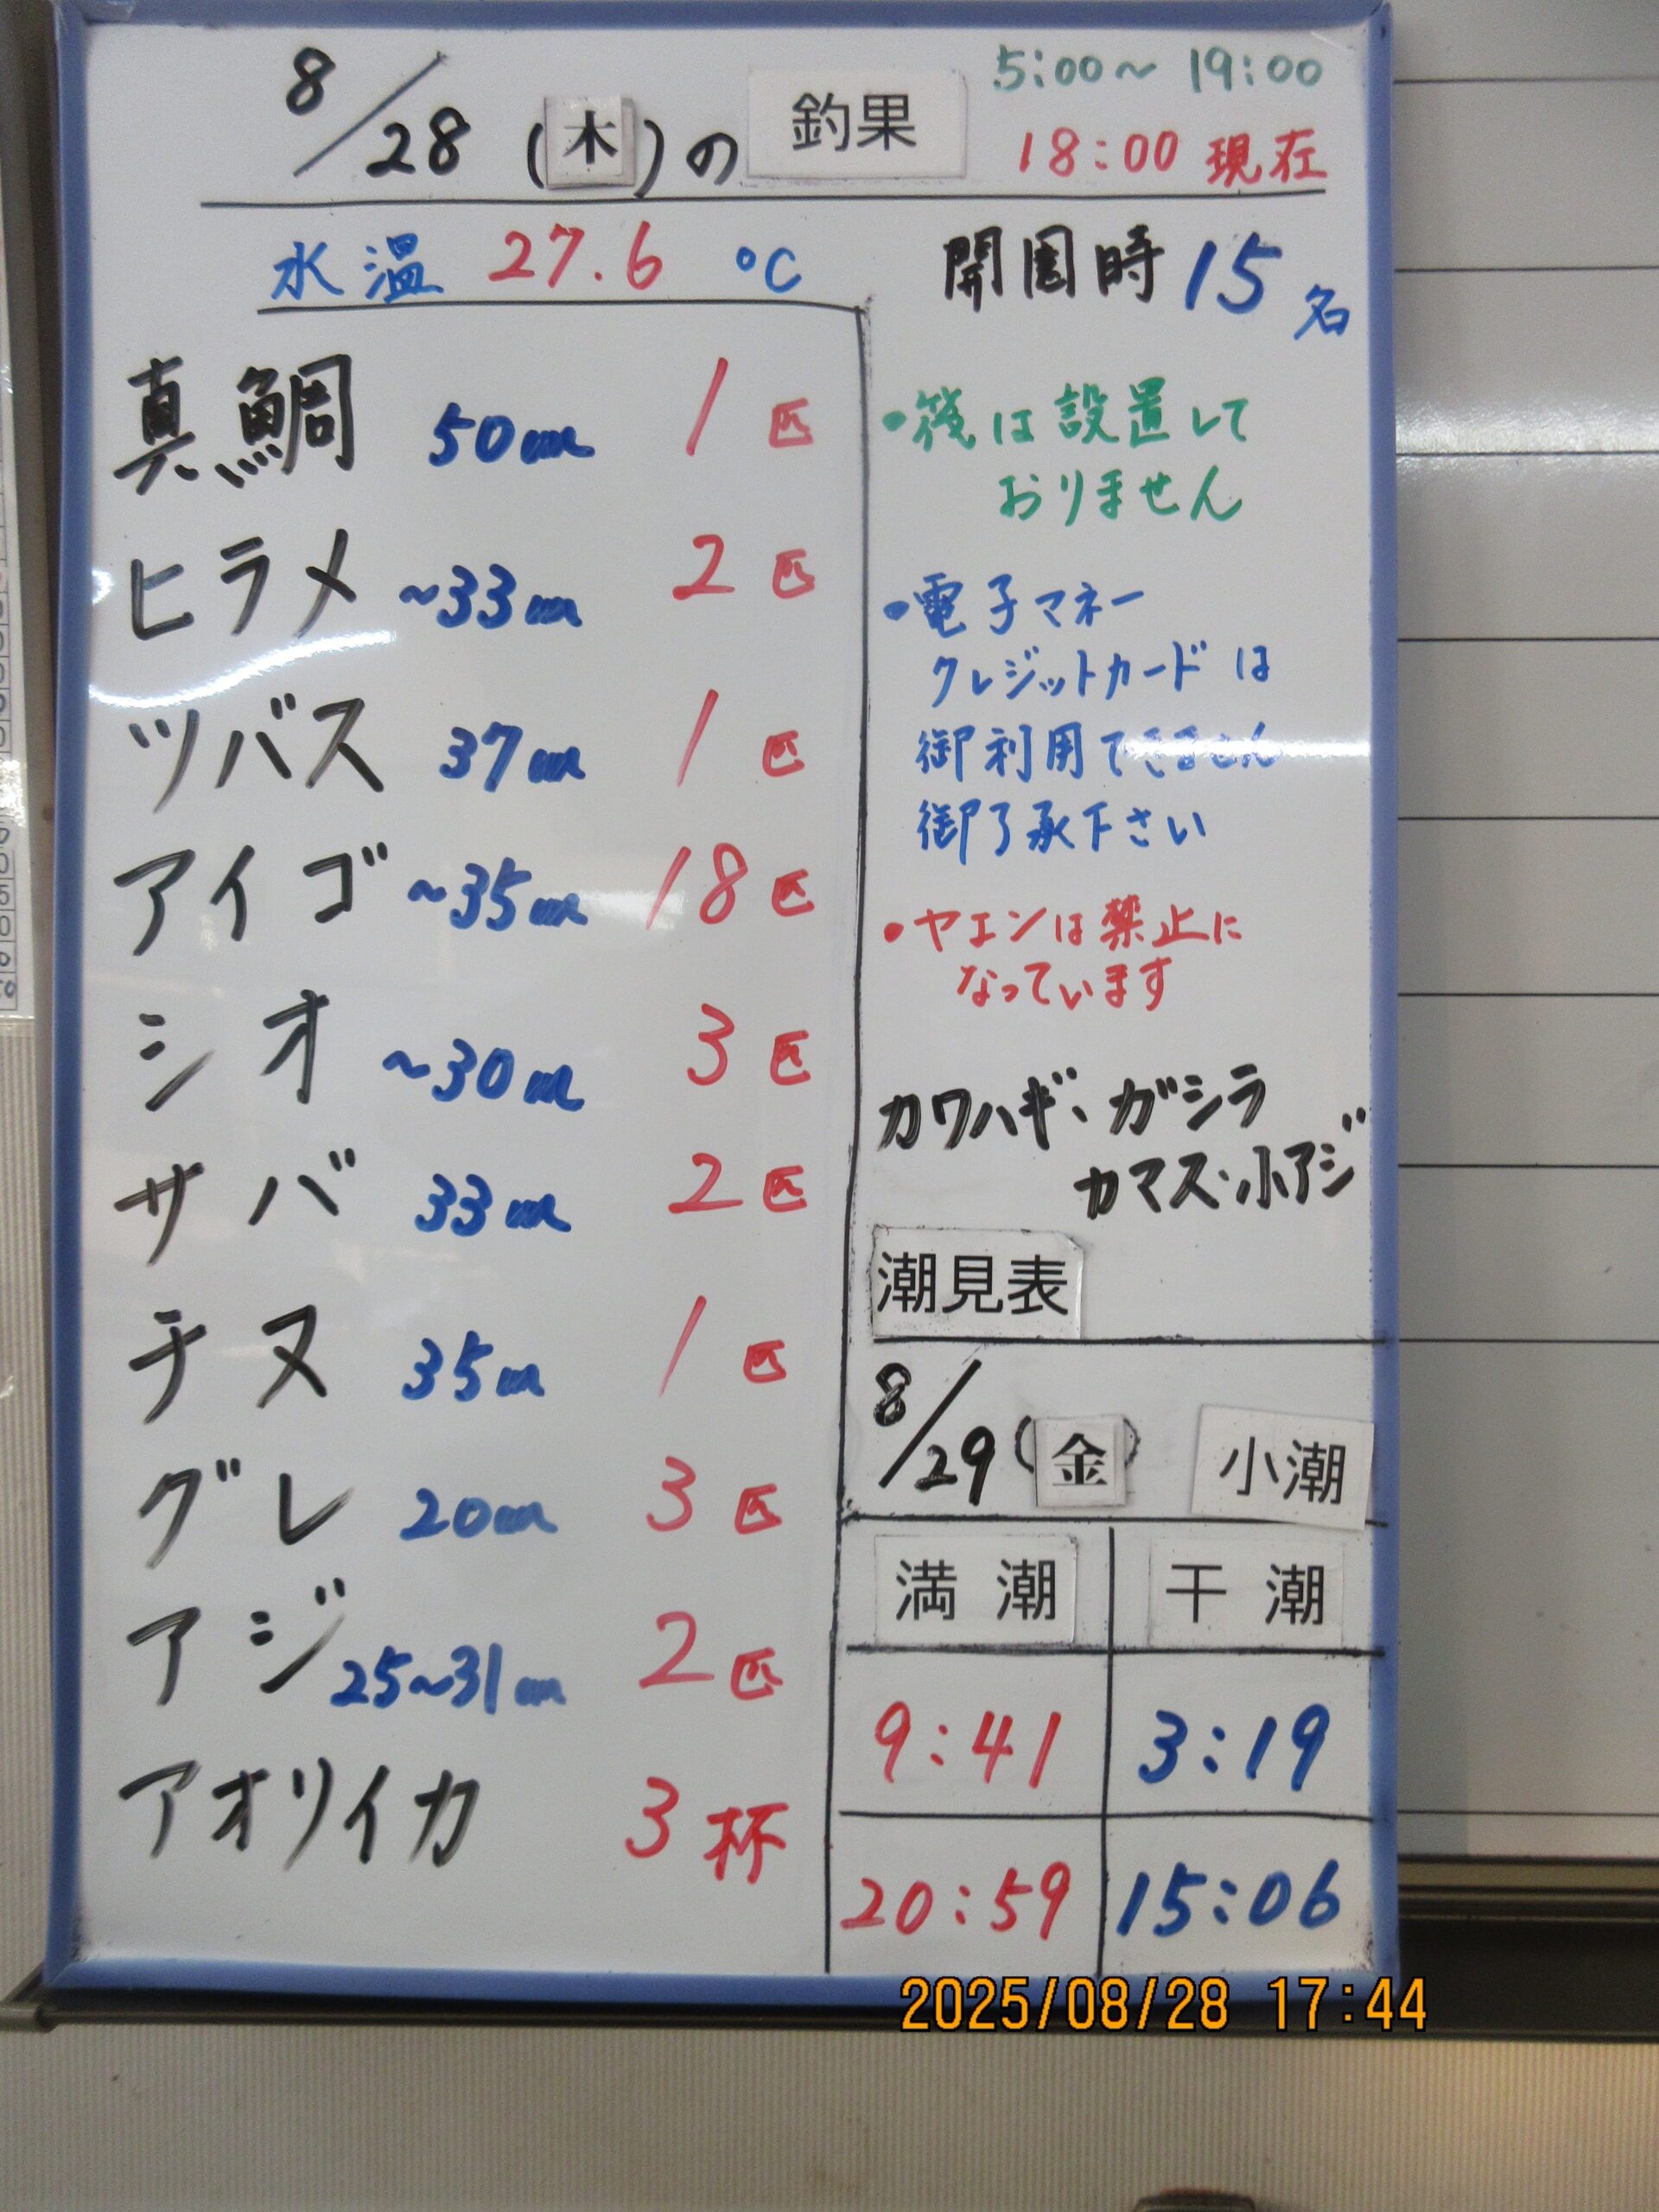 8/28 (木)の 釣果
5:00~19:00
18:00 現在
水温 27.6 ℃
開園時 15名
真鯛 50cm 1匹
ヒラメ ~33cm 2匹
ツバス 37cm 1匹
アイゴ ~35cm 18匹
シオ ~30cm 3匹
サバ 33cm 2匹
チヌ 35cm 1匹
グレ 20cm 3匹
アジ 25~31cm 2匹
アオリイカ 3杯
・筏は設置して
おりません
・電子マネー
クレジットカードは
御利用できません
御了承下さい
・ヤエンは禁止に
なっています
カワハギ、ガシラ
カマス・小アジ
潮見表
8/29 (金) 小潮
満潮 干潮
9:41 3:19
20:59 15:06
2025/08/28 17:44